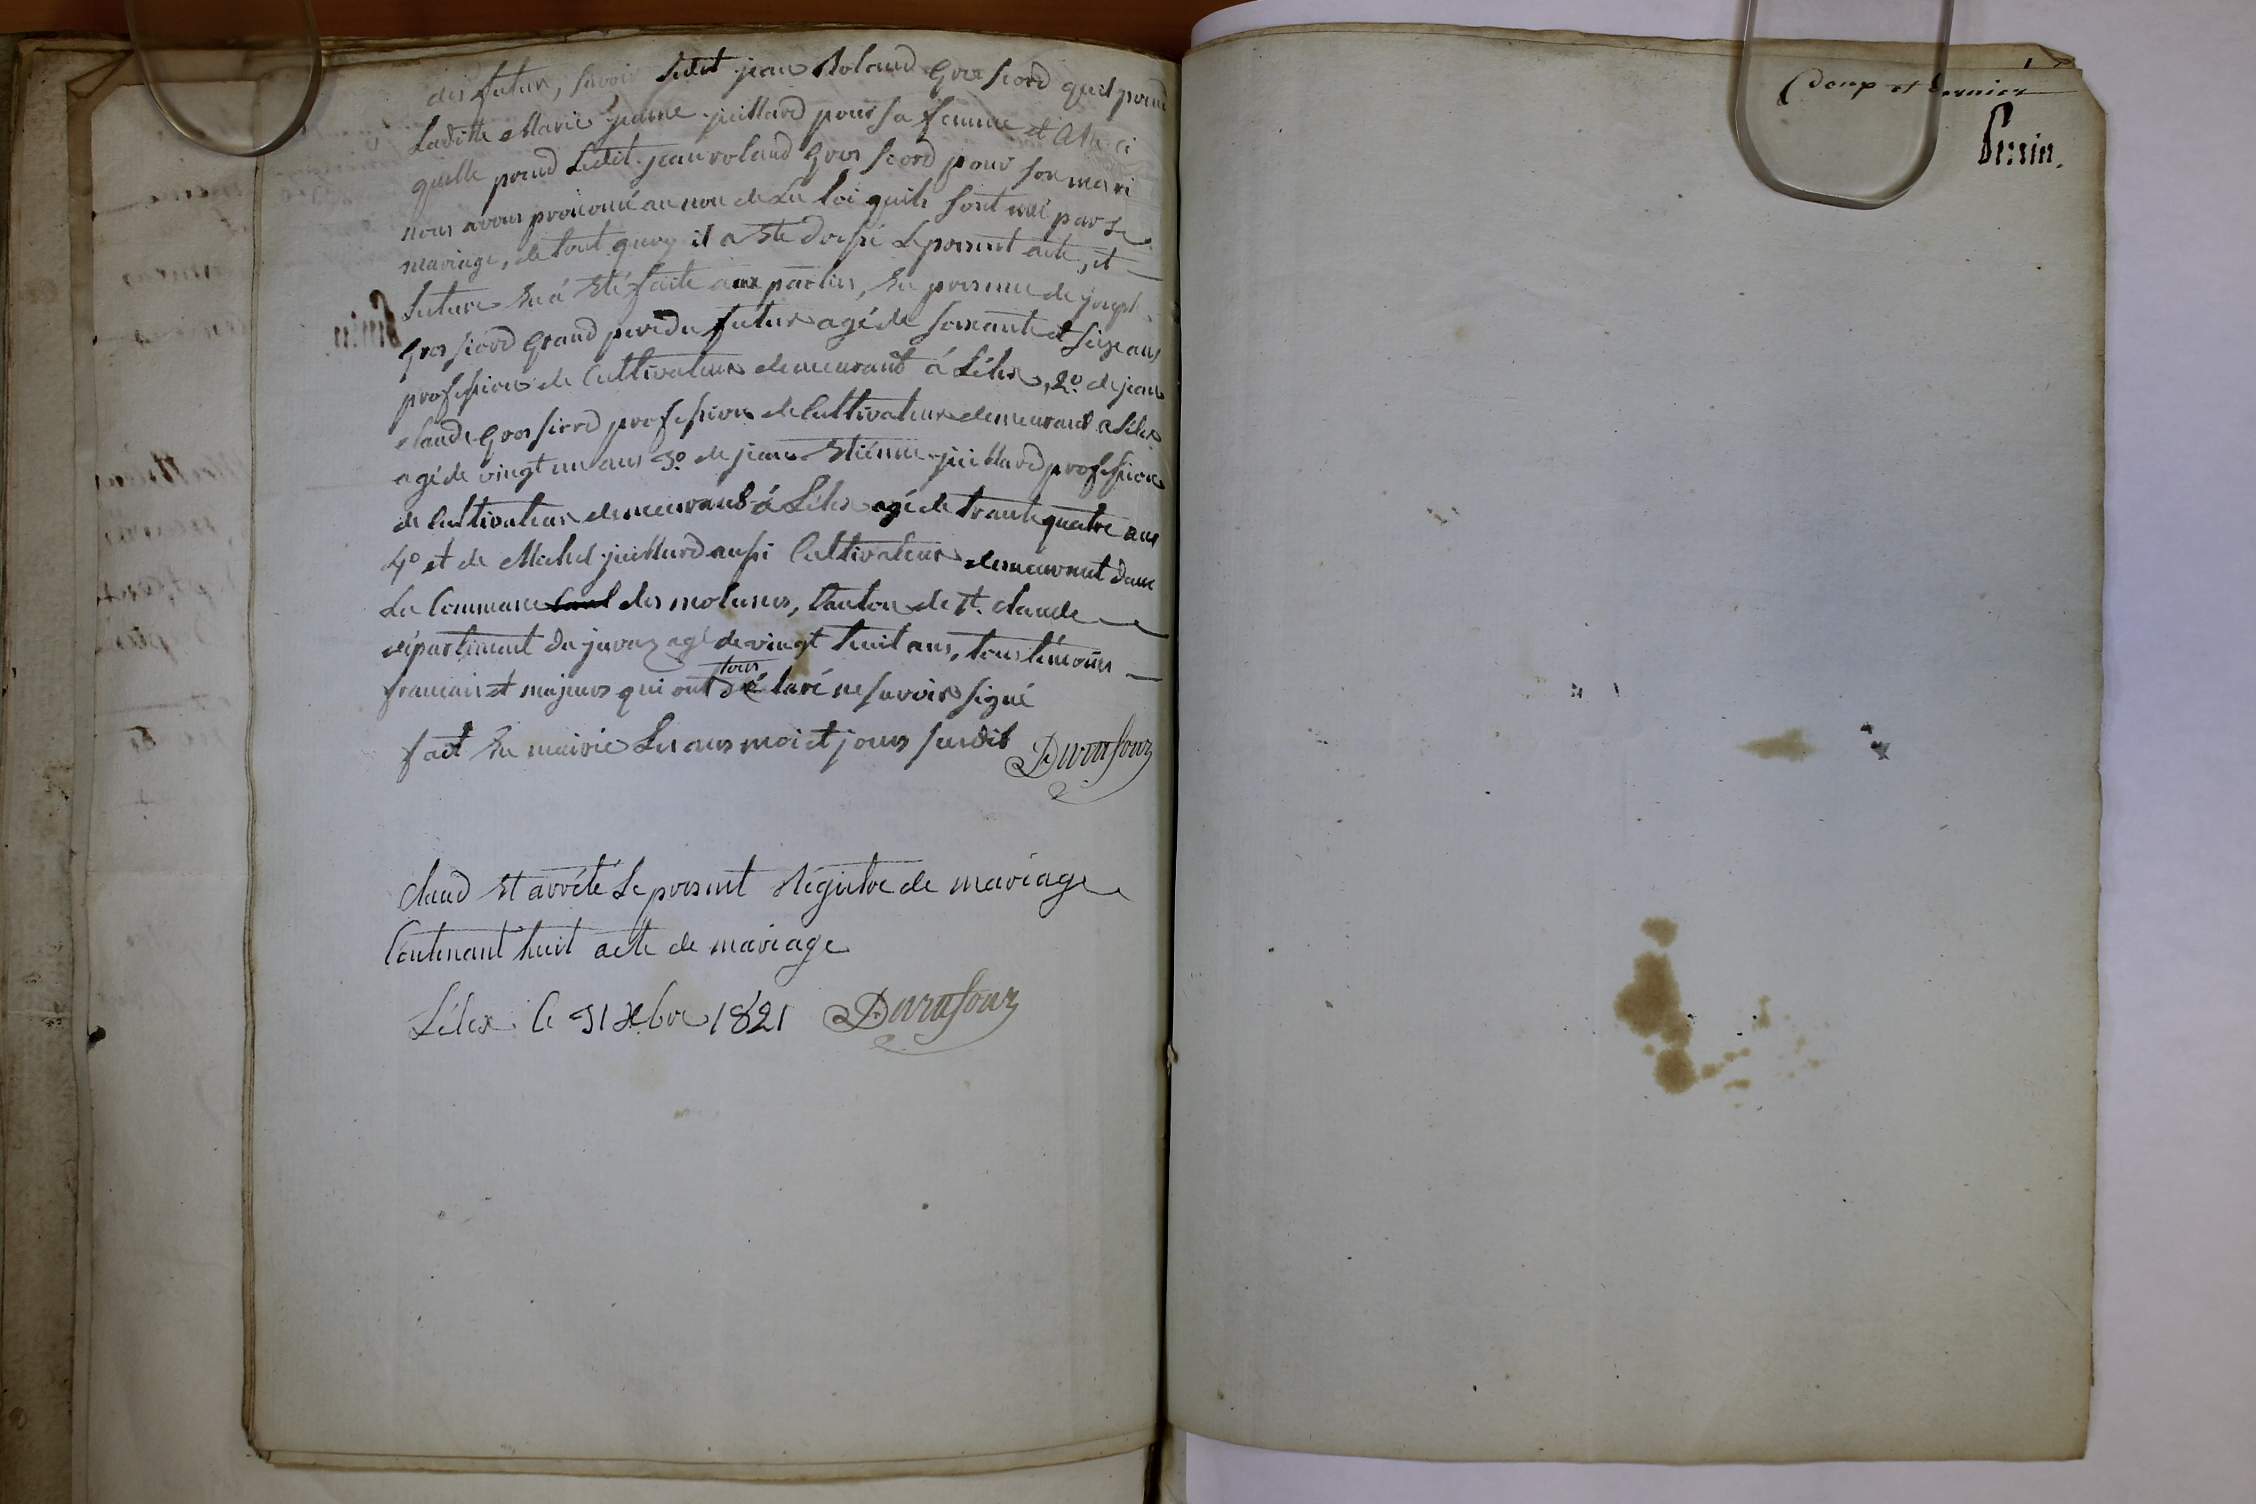 des futur, savoir ledit jean Roland Gros fiord quil prend
Laditte Marie juillard pour sa femme et
quelle prend Ledit jean roland Gros fiord pour son mari
nous avons prononcé au nom de La loi quils sont uni par Le
mariage, de tout quoy il a Eté dressé Le present acte, et
Lecture En á Eté faite aux parties, En presence de joseph
Gros fiord Grand pere du futur agé de soixante et seize ans
profession de Cultivateur demeurant á Lélex, 2º. de jean
claude Gros fiord profession de Cultivateur demeurant a Lélex
agé de vingt un ans 3º. de jean Etienne juillard profession
de Cultivateur demeurant á Lélex agé de trante quatre ans
4º et de Michel juillard aussi Cultivateur demeurant dans
La Commune des molunes, Canton de St. claude
département du jura agé de vingt huit ans, tous témoins
francais et majeurs qui ont tous déclaré ne savoir signé
fait En mairie Les ans moi et jours susdit Durafour
Perrin
Claud Et arrêté Le present Régistre de mariage
Contenant huit acte de mariage
Lélex le 31 Xbre 1821 Durafour
douze et dernier
Perrin.